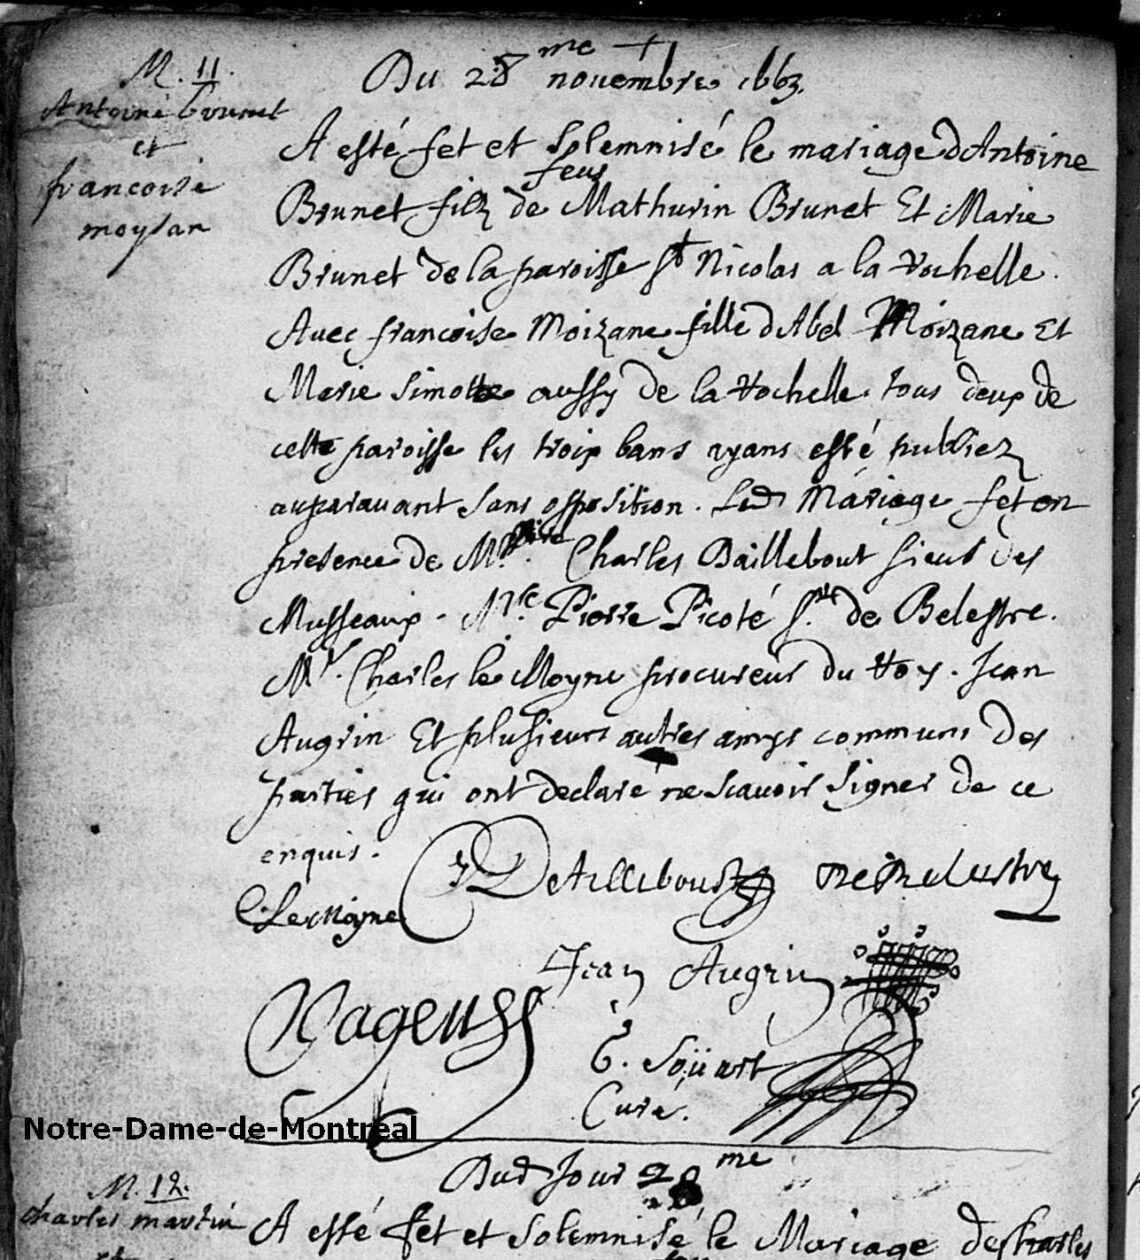 M. 11.
Antoine brunet
et
francoise
moysan
Du 28me novembre 1663.
A esté fet et solemnisé le mariage dAntoine
Brunet filz de feus Mathurin Brunet Et Marie
Brunet de la paroisse St Nicolas a la Rochelle.
Avec francoise Moizane fille dAbel Moizane Et
Marie Simotte aussy de la Rochelle. tous deux de
cette paroisse les troix bans ayans esté publiez
auparavant sans opposition. Led Mariage fet en
presence de Charles Daillebout sieur des
Musseaux. Mre Pierre Picoté Sr de Belestre.
Mr. Charles le Moyne procureur du Roy. Jean
Augrin Et plusieurs autres amys communs des
parties qui ont declaré ne scavoir signer de ce
enquis.
C. LeMoyne
DeAilleboust
Jean Augrin
G. Soüart
Curé.
Notre-Dame-de-Montréal
Dud Jour 28me
M. 12.
charles martin
A esté fet et solemnisé le Mariage de Charles